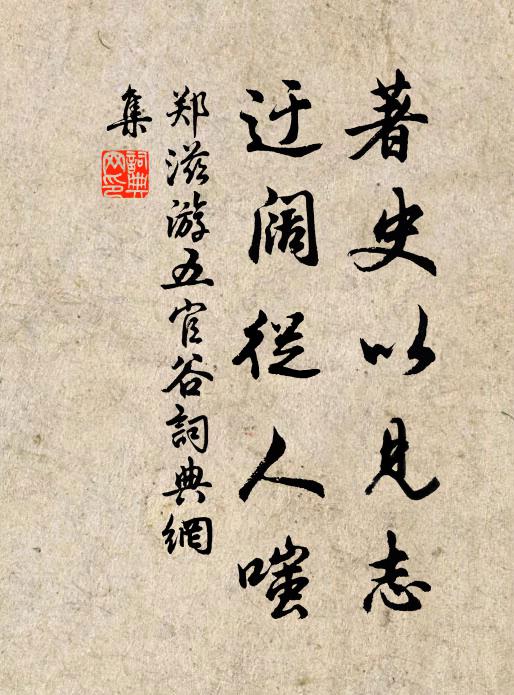 著史以見志
迂阔從人嗤
郑滋游五官谷詞典網
集
詞典
网印